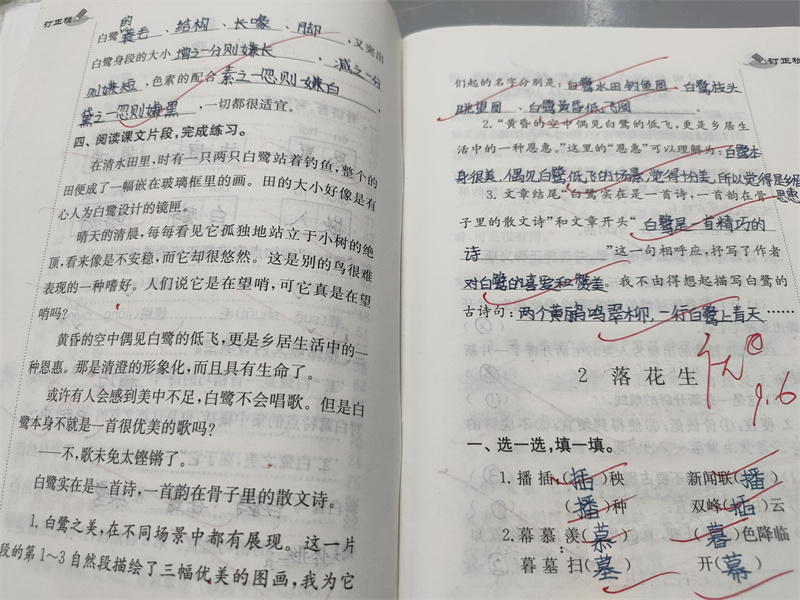 订正栏
的
白鹭 蓑毛 、 结构 、 长喙 、 脚 ,又突出
白鹭身段的大小 增之一分则嫌长 、 减之一分
则嫌短 、色素的配合 素之一忽则嫌白 、
黛之一忽则嫌黑 ,一切都很适宜。
四、阅读课文片段,完成练习。
在清水田里,时有一只两只白鹭站着钓鱼,整个的
田便成了一幅嵌在玻璃框里的画。田的大小好像是有
心人为白鹭设计的镜匣。
晴天的清晨,每每看见它孤独地站立于小树的绝
顶,看来像是不安稳,而它却很悠然。这是别的鸟很难
表现的一种嗜好。人们说它是在望哨,可它真是在望
哨吗?
黄昏的空中偶见白鹭的低飞,更是乡居生活中的一
种恩惠。那是清澄的形象化,而且具有生命了。
或许有人会感到美中不足,白鹭不会唱歌。但是白
鹭本身不就是一首很优美的歌吗?
——不,歌未免太铿锵了。
白鹭实在是一首诗,一首韵在骨子里的散文诗。
1. 白鹭之美,在不同场景中都有展现。这一片
段的第1~3自然段描绘了三幅优美的图画,我为它
订正栏
们起的名字分别是: 白鹭水田钓鱼图 、 白鹭枝头
眺望图 、 白鹭黄昏低飞图 。
2. “黄昏的空中偶见白鹭的低飞,更是乡居生
活中的一种恩惠。”这里的“恩惠”可以理解为: 白鹭本
身很美,偶见白鹭低飞的场景,觉得十分美,所以觉得是乡居
恩惠
3. 文章结尾“白鹭实在是一首诗,一首韵在骨
子里的散文诗”和文章开头“ 白鹭是一首精巧的
诗 ”这一句相呼应,抒写了作者
对白鹭的喜爱和赞美 。我不由得想起描写白鹭的
古诗句: 两个黄鹂鸣翠柳,一行白鹭上青天 ……
优
9.6
2 落花生
一、选一选,填一填。
1. 播 插 (插)秧 新闻联(播)
(播)种 双峰(插)云
2. 幕 慕 羡(慕) (暮)色降临
暮 墓 扫(墓) 开(幕)